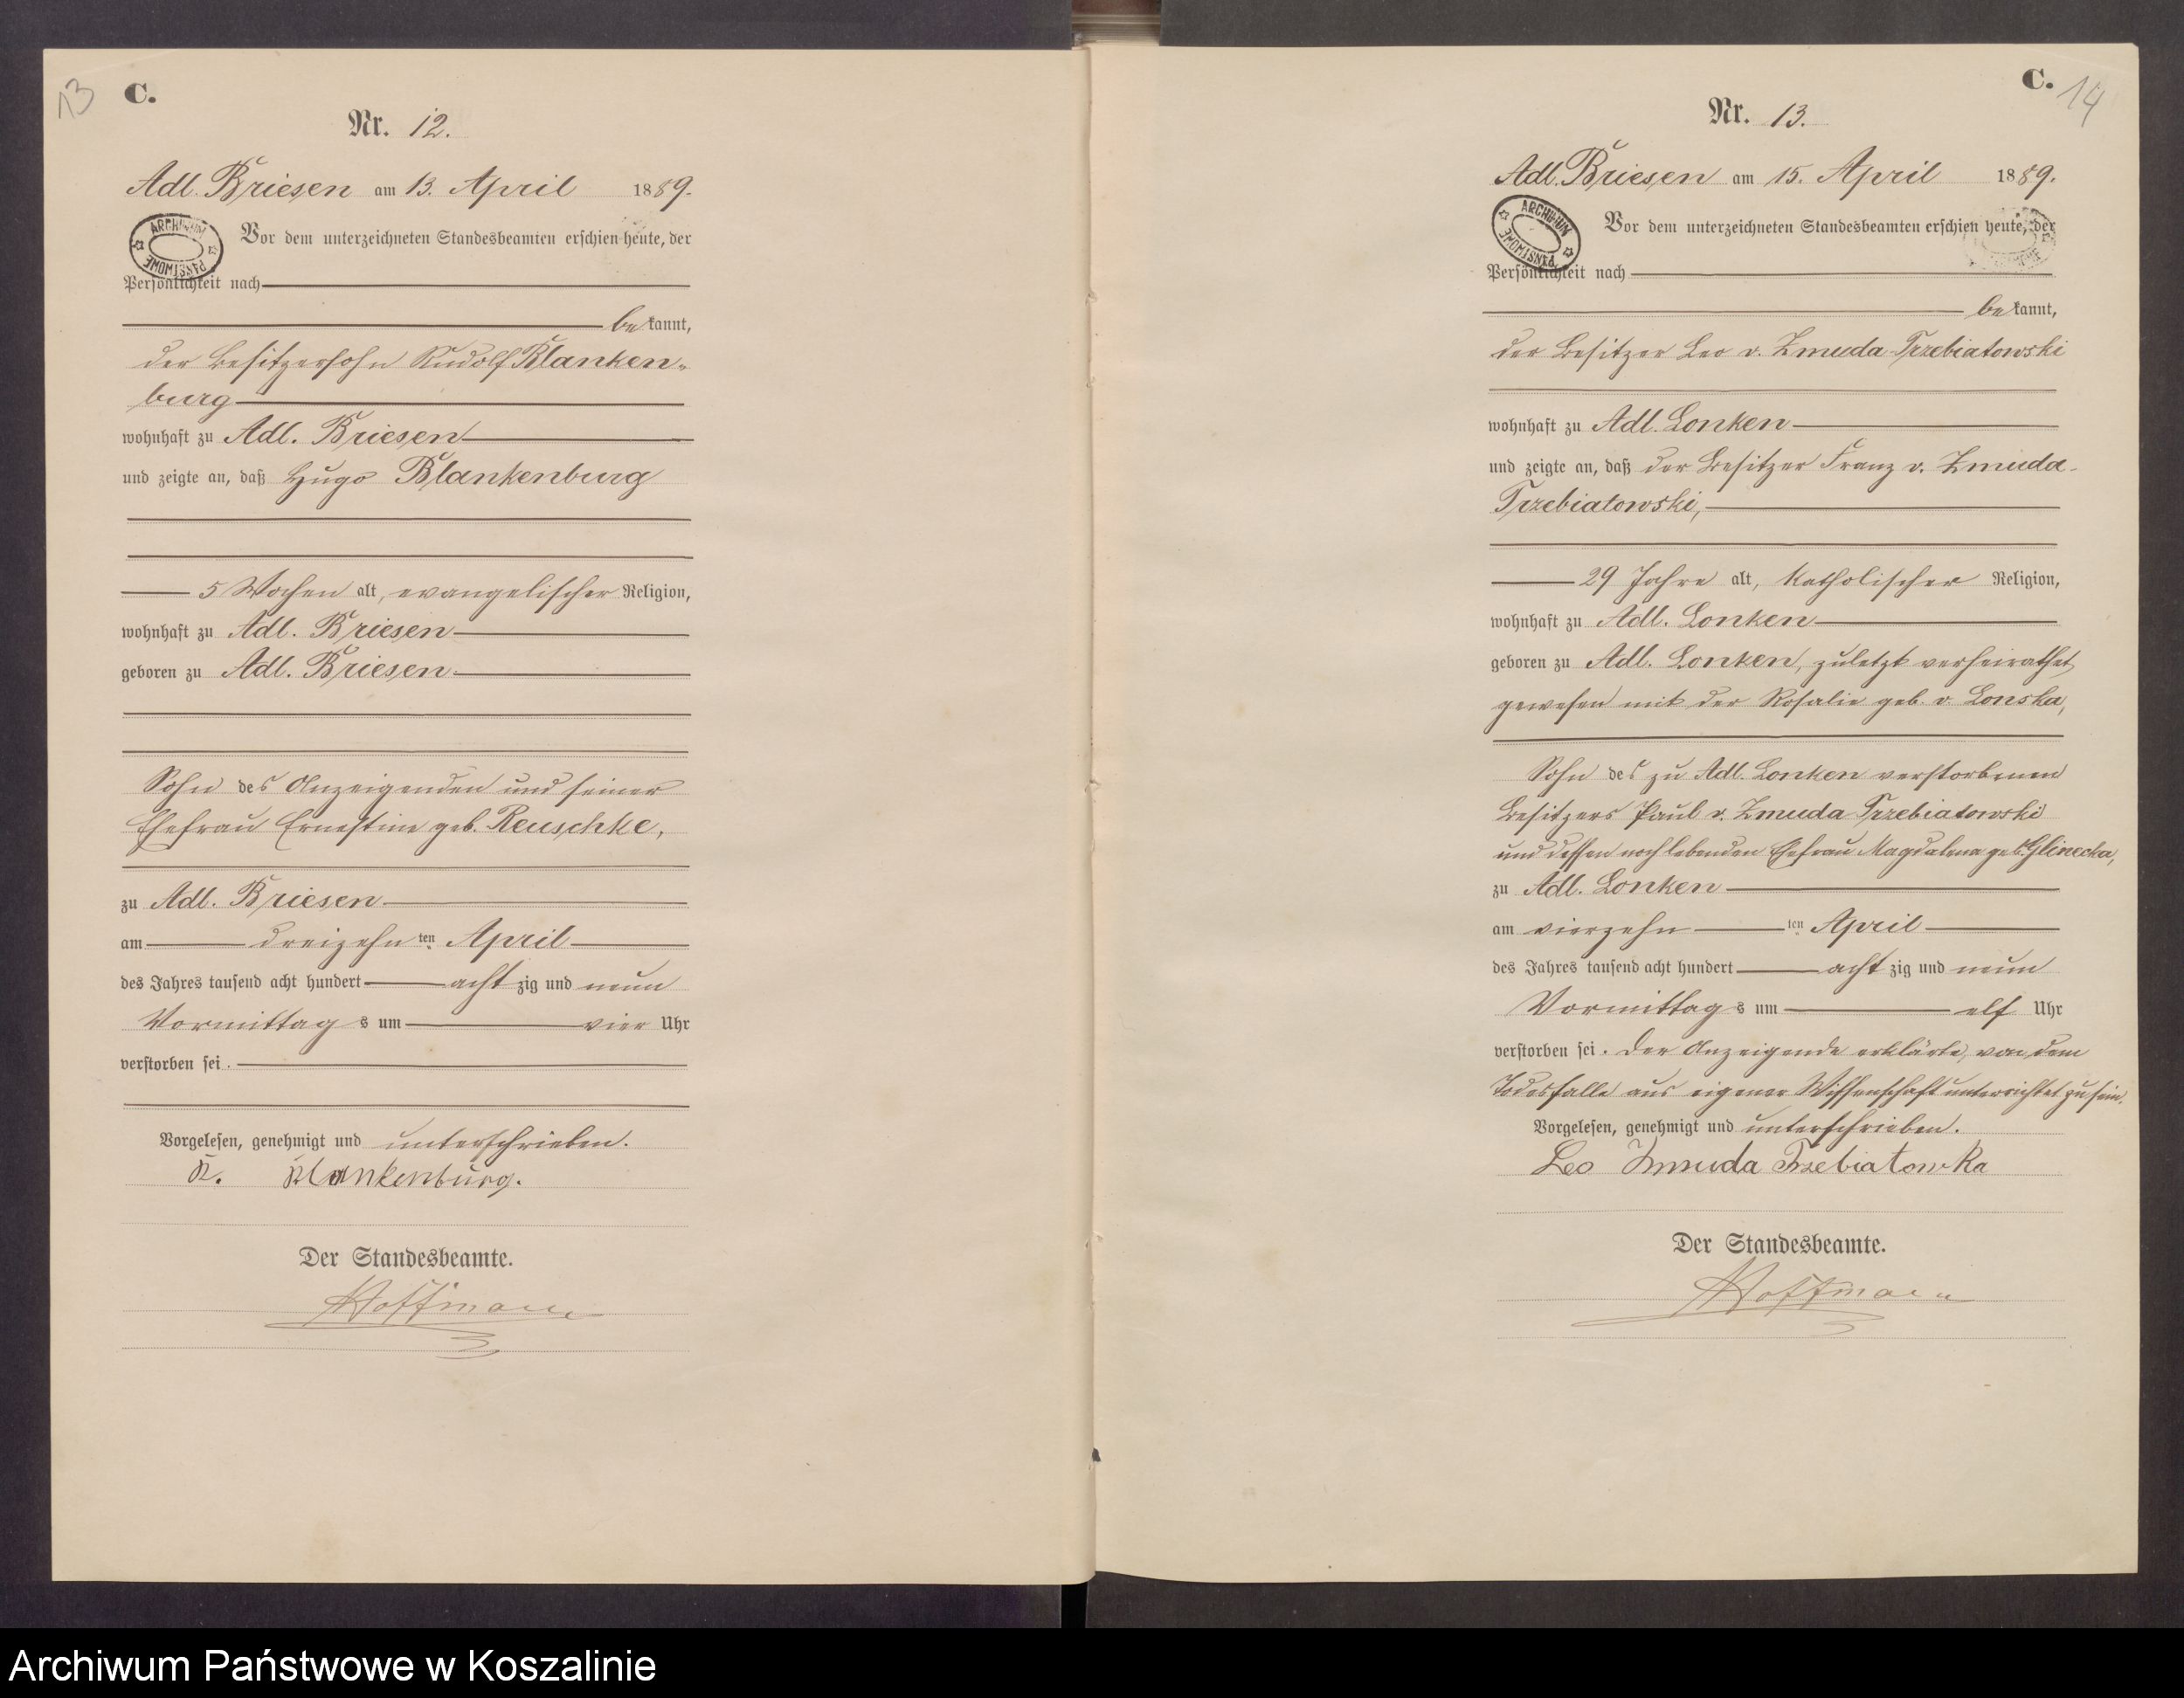 13
C.
Nr. 12.
Adl. Briesen am 13. April 1889.
ARCHIWUM PAŃSTWOWE
Vor dem unterzeichneten Standesbeamten erschien heute, der
Persönlichkeit nach
bekannt,
der Besitzersohn Rudolf Blanken-
burg
wohnhaft zu Adl. Briesen
und zeigte an, daß Hugo Blankenburg
5 Wochen alt, evangelischer Religion,
wohnhaft zu Adl. Briesen
geboren zu Adl. Briesen
Sohn des Anzeigenden und seiner
Ehefrau Ernestine geb. Reuschke,
zu Adl. Briesen
am dreizehnten April
des Jahres tausend acht hundert achtzig und neun
Vormittags um vier Uhr
verstorben sei.
Vorgelesen, genehmigt und unterschrieben.
R. Blankenburg.
Der Standesbeamte.
Hoffmann
C.
14
Nr. 13.
Adl. Briesen am 15. April 1889.
ARCHIWUM PAŃSTWOWE
Vor dem unterzeichneten Standesbeamten erschien heute, der
Persönlichkeit nach
bekannt,
der Besitzer Leo v. Zmuda-Trzebiatowski
wohnhaft zu Adl. Lonken
und zeigte an, daß der Besitzer Franz v. Zmuda-
Trzebiatowski,
29 Jahre alt, katholischer Religion,
wohnhaft zu Adl. Lonken
geboren zu Adl. Lonken, zuletzt verheirathet
gewesen mit der Rosalie geb. v. Lonska,
Sohn des zu Adl. Lonken verstorbenen
Besitzers Paul v. Zmuda-Trzebiatowski
und dessen noch lebenden Ehefrau Magdalena geb. Glinecka,
zu Adl. Lonken
am vierzehnten April
des Jahres tausend acht hundert achtzig und neun
Vormittags um elf Uhr
verstorben sei. Der Anzeigende erklärte, von dem
Todesfalle aus eigener Wissenschaft unterrichtet zu sein.
Vorgelesen, genehmigt und unterschrieben.
Leo Zmuda Trzebiatowska
Der Standesbeamte.
Hoffmann
Archiwum Państwowe w Koszalinie